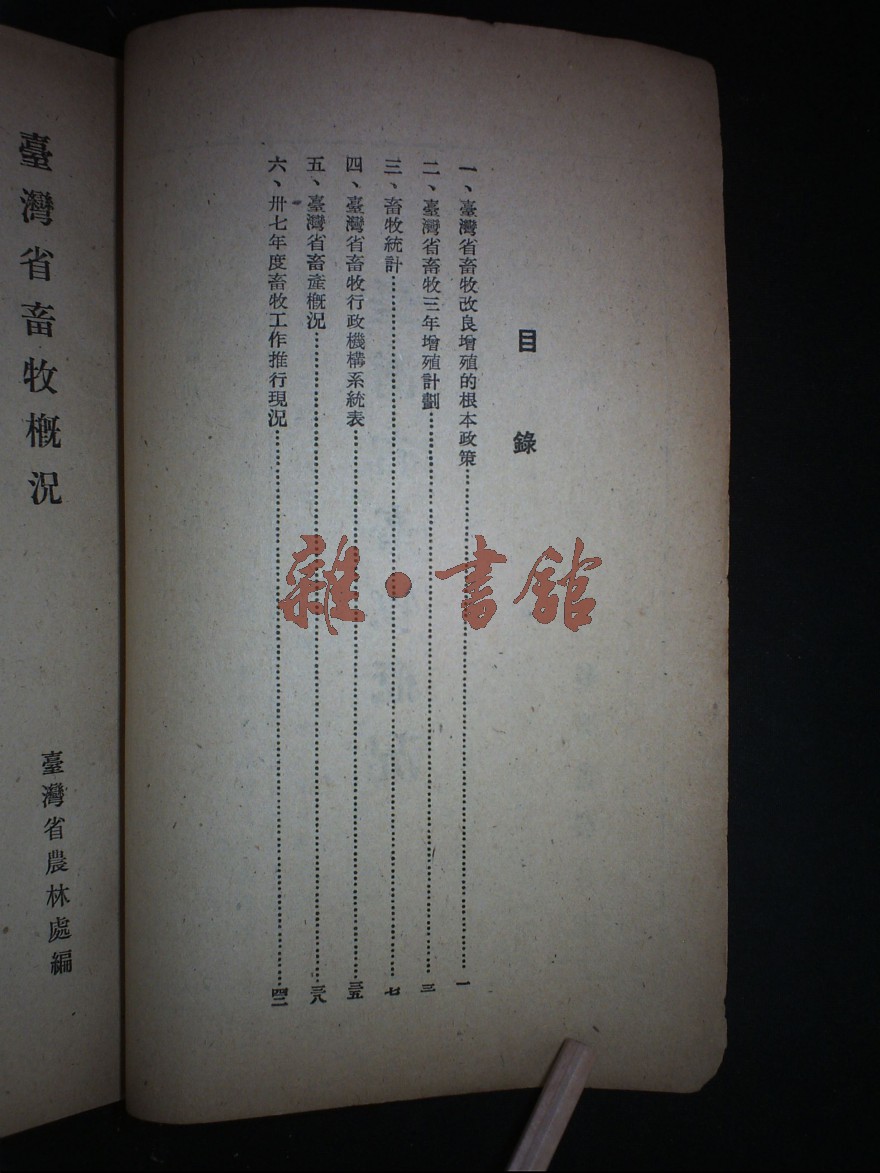 目錄
一、臺灣省畜牧改良增殖的根本政策……一
二、臺灣省畜牧三年增殖計劃……三
三、畜牧統計……七
四、臺灣省畜牧行政機構系統表……三五
五、臺灣省畜產槪況……三八
六、卅七年度畜牧工作推行現況……四二
臺灣省畜牧槪況
臺灣省農林處編
雜・書館